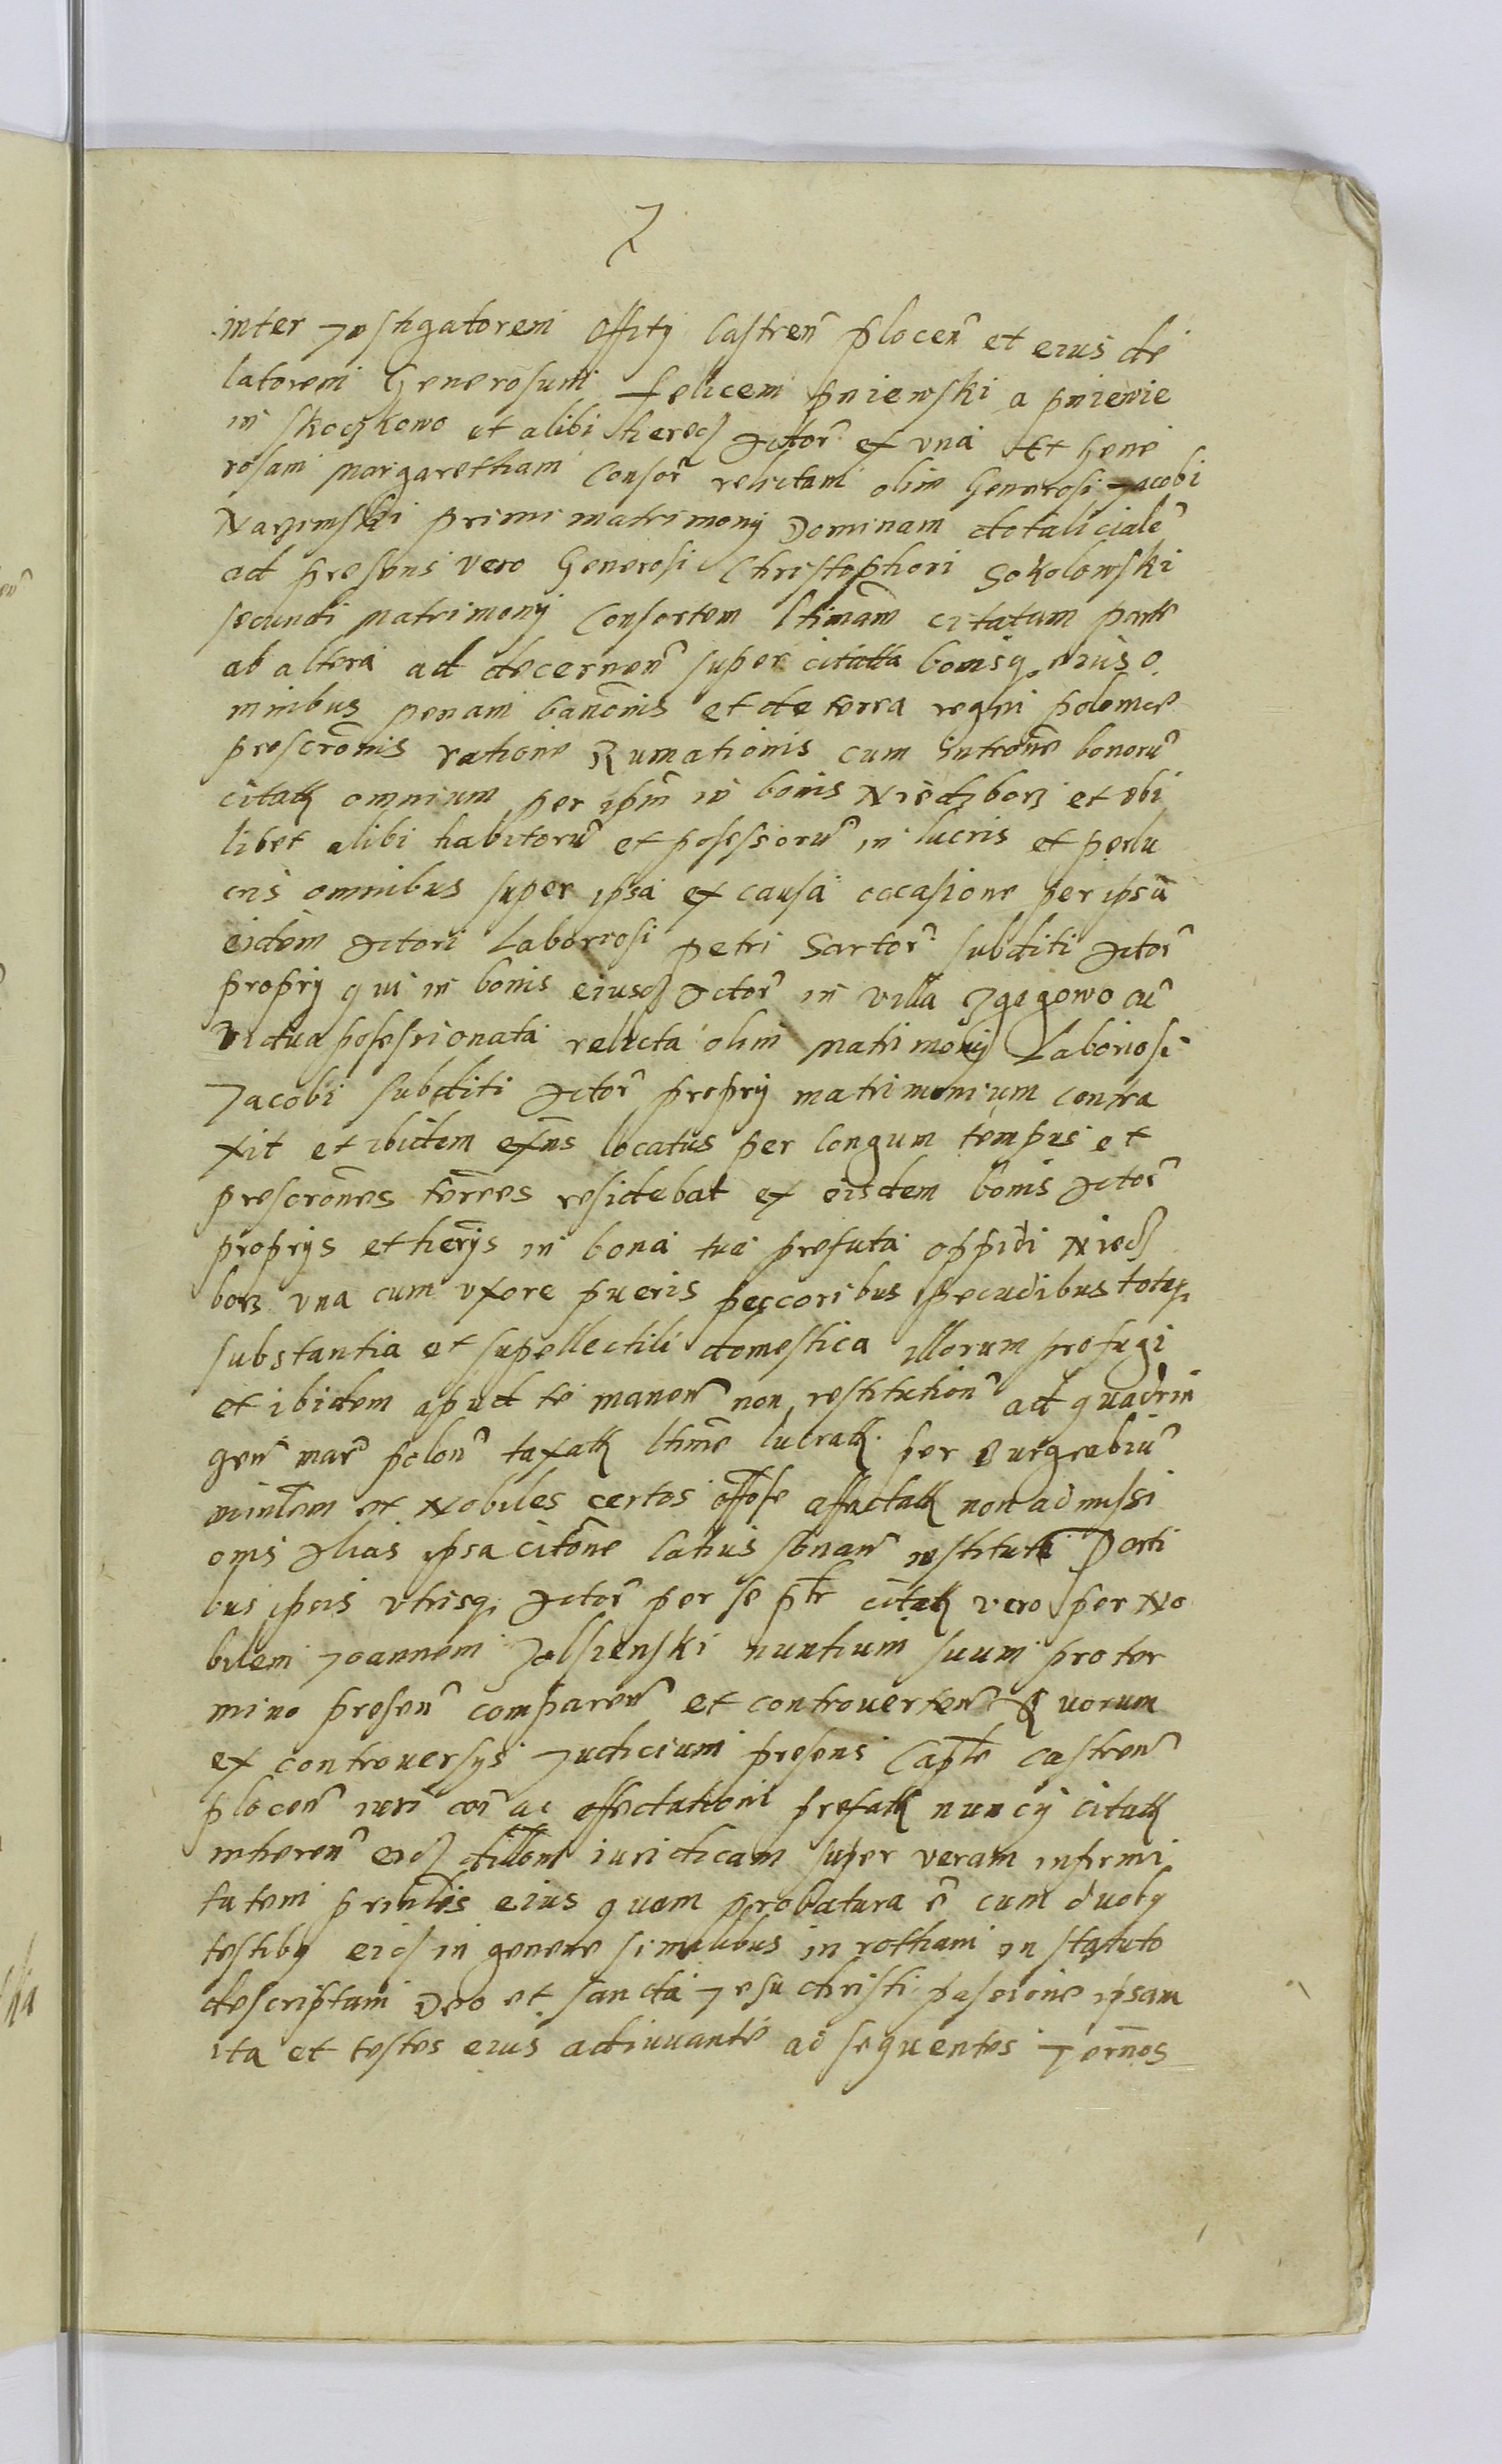 7
inter Instigatorem Officÿ Castren̄ plocen̄ et eius de
latorem Generosum felicem pniewski a pniewie
in Skoczkowo et alibi hered Actor̄ ex vna Et Gene
rosam Margaretham Consor̄ relictam olim Generosi Jacobi
Narzimski primi matrimonÿ Dominam dotalicialē
ad presens vero Generosi Christophori Sokolowski
secundi matrimonÿ Consortem ltimam̄ citatam parte
ab altera ad decernen̄ super citatta bonisq eius o
mnibus penam bannōnis et de terra regni polonice
proscrōnis ratione Rumationis cum Introne bonorū
citatt omnium per ipm̄ in bonis Niedzborz et vbi
libet alibi habitorū et possessorū in lucris et perlu
cris omnibus super ipsa ex causa occasione per ipsā
eidem Actori Laboriosi petri Sartor̄ subditi Actor̄
proprÿ qui in bonis eiusd Actor̄ in villa Zgagowo cū
vidua possessionata relicta olim matrimonÿ Laboriosi
Jacobi subditi Actor̄ proprÿ matrimonium contra
xit et ibidem exn̄s locatus per longum tempus et
prescrōnes terr̄es residebat ex eisdem bonis Actor̄
proprÿs et herÿs in bona tua prefata oppidi Niedz
borz vna cum vxore pueris peccoribus pecudibus totaq
substantia et supellectili domestica illorum profugi
et ibidem apud te manen̄ non restitution̄ ad quadrin
gen̄ mar̄ polon̄ taxatt ltime lucratt per Burgrabiū
minlem et Nobiles certos offose affectatt non admissi
onis Alias ipsa citōne latius sonan̄ institut Parti
bus ipsis vtrisq Actor̄ per se ptr citatt vero per No
bilem Joannem Zolsienski nuntium suum pro ter
mino presen̄ comparen̄ et controuerten̄ Quorum
ex controuersÿs Judicium presens Capte castren̄
plocen̄ iuri coi ac affectationi prefatt nuncÿ citatt
inheren̄ eid dillōne iuridicam super veram infirmi
tatem prinlis eius quam probatura ē cum duoby
testiby eid in genere similibus in rotham in statuto
descriptam Deo et sancta Jesu christi passione ipsam
ita et testes eius adiuuante ad sequentes Term̄nos